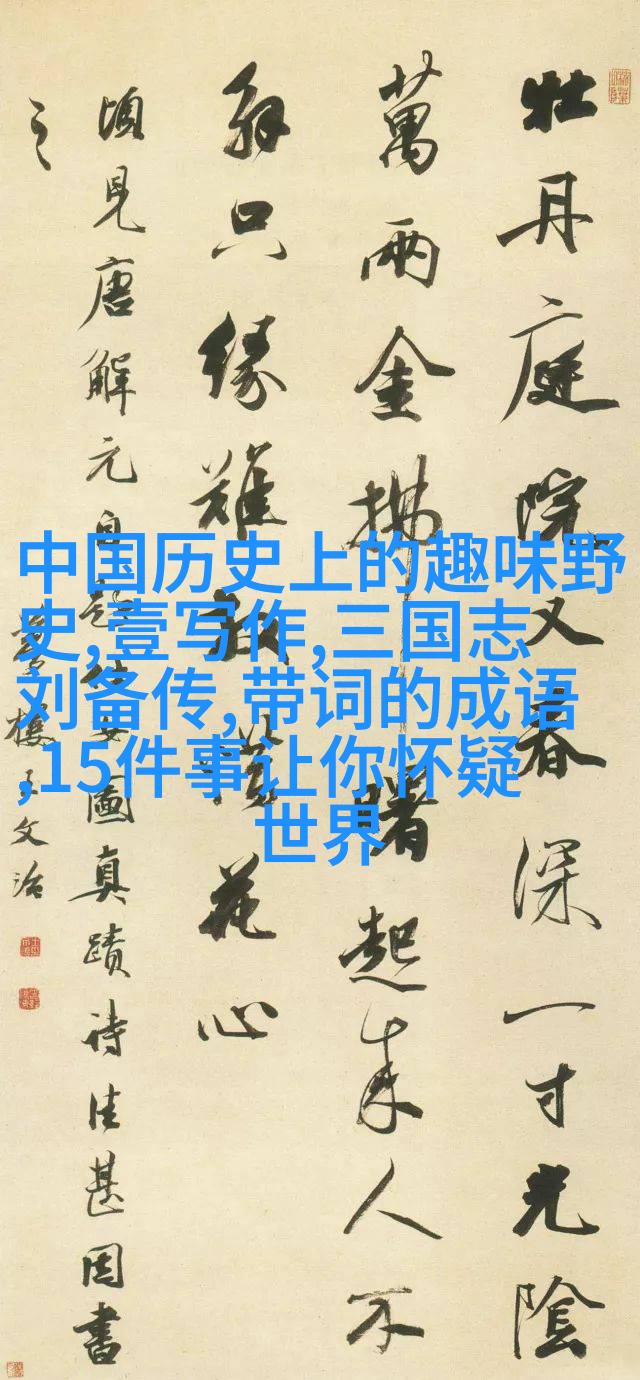 中国历史上的趣味野
史,壹写作,三国志
刘备传,带词的成语
,15件事让你怀疑
世界
牡丹庭院又春深一寸光陰
萬兩金拂曙起來人不
解只緣難放惜花心
頃見唐解元自題仕女圖真蹟詩佳甚因書
之
夢樓王文治